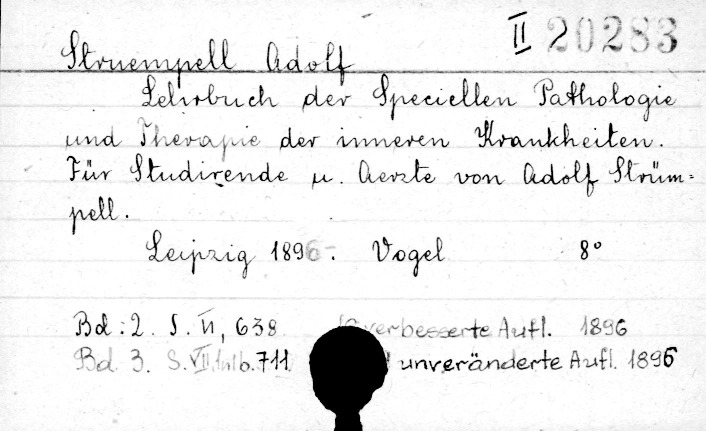 II 20283
Struempell Adolf
Lehrbuch der Speciellen Pathologie
und Therapie der inneren Krankheiten.
Für Studirende u. Aerzte von Adolf Strüm=
pell.
Leipzig 1896 . Vogel 8°
Bd: 2. S. VI, 638 verbesserte Aufl. 1896
Bd 3. S. VII, 711 unveränderte Aufl. 1896